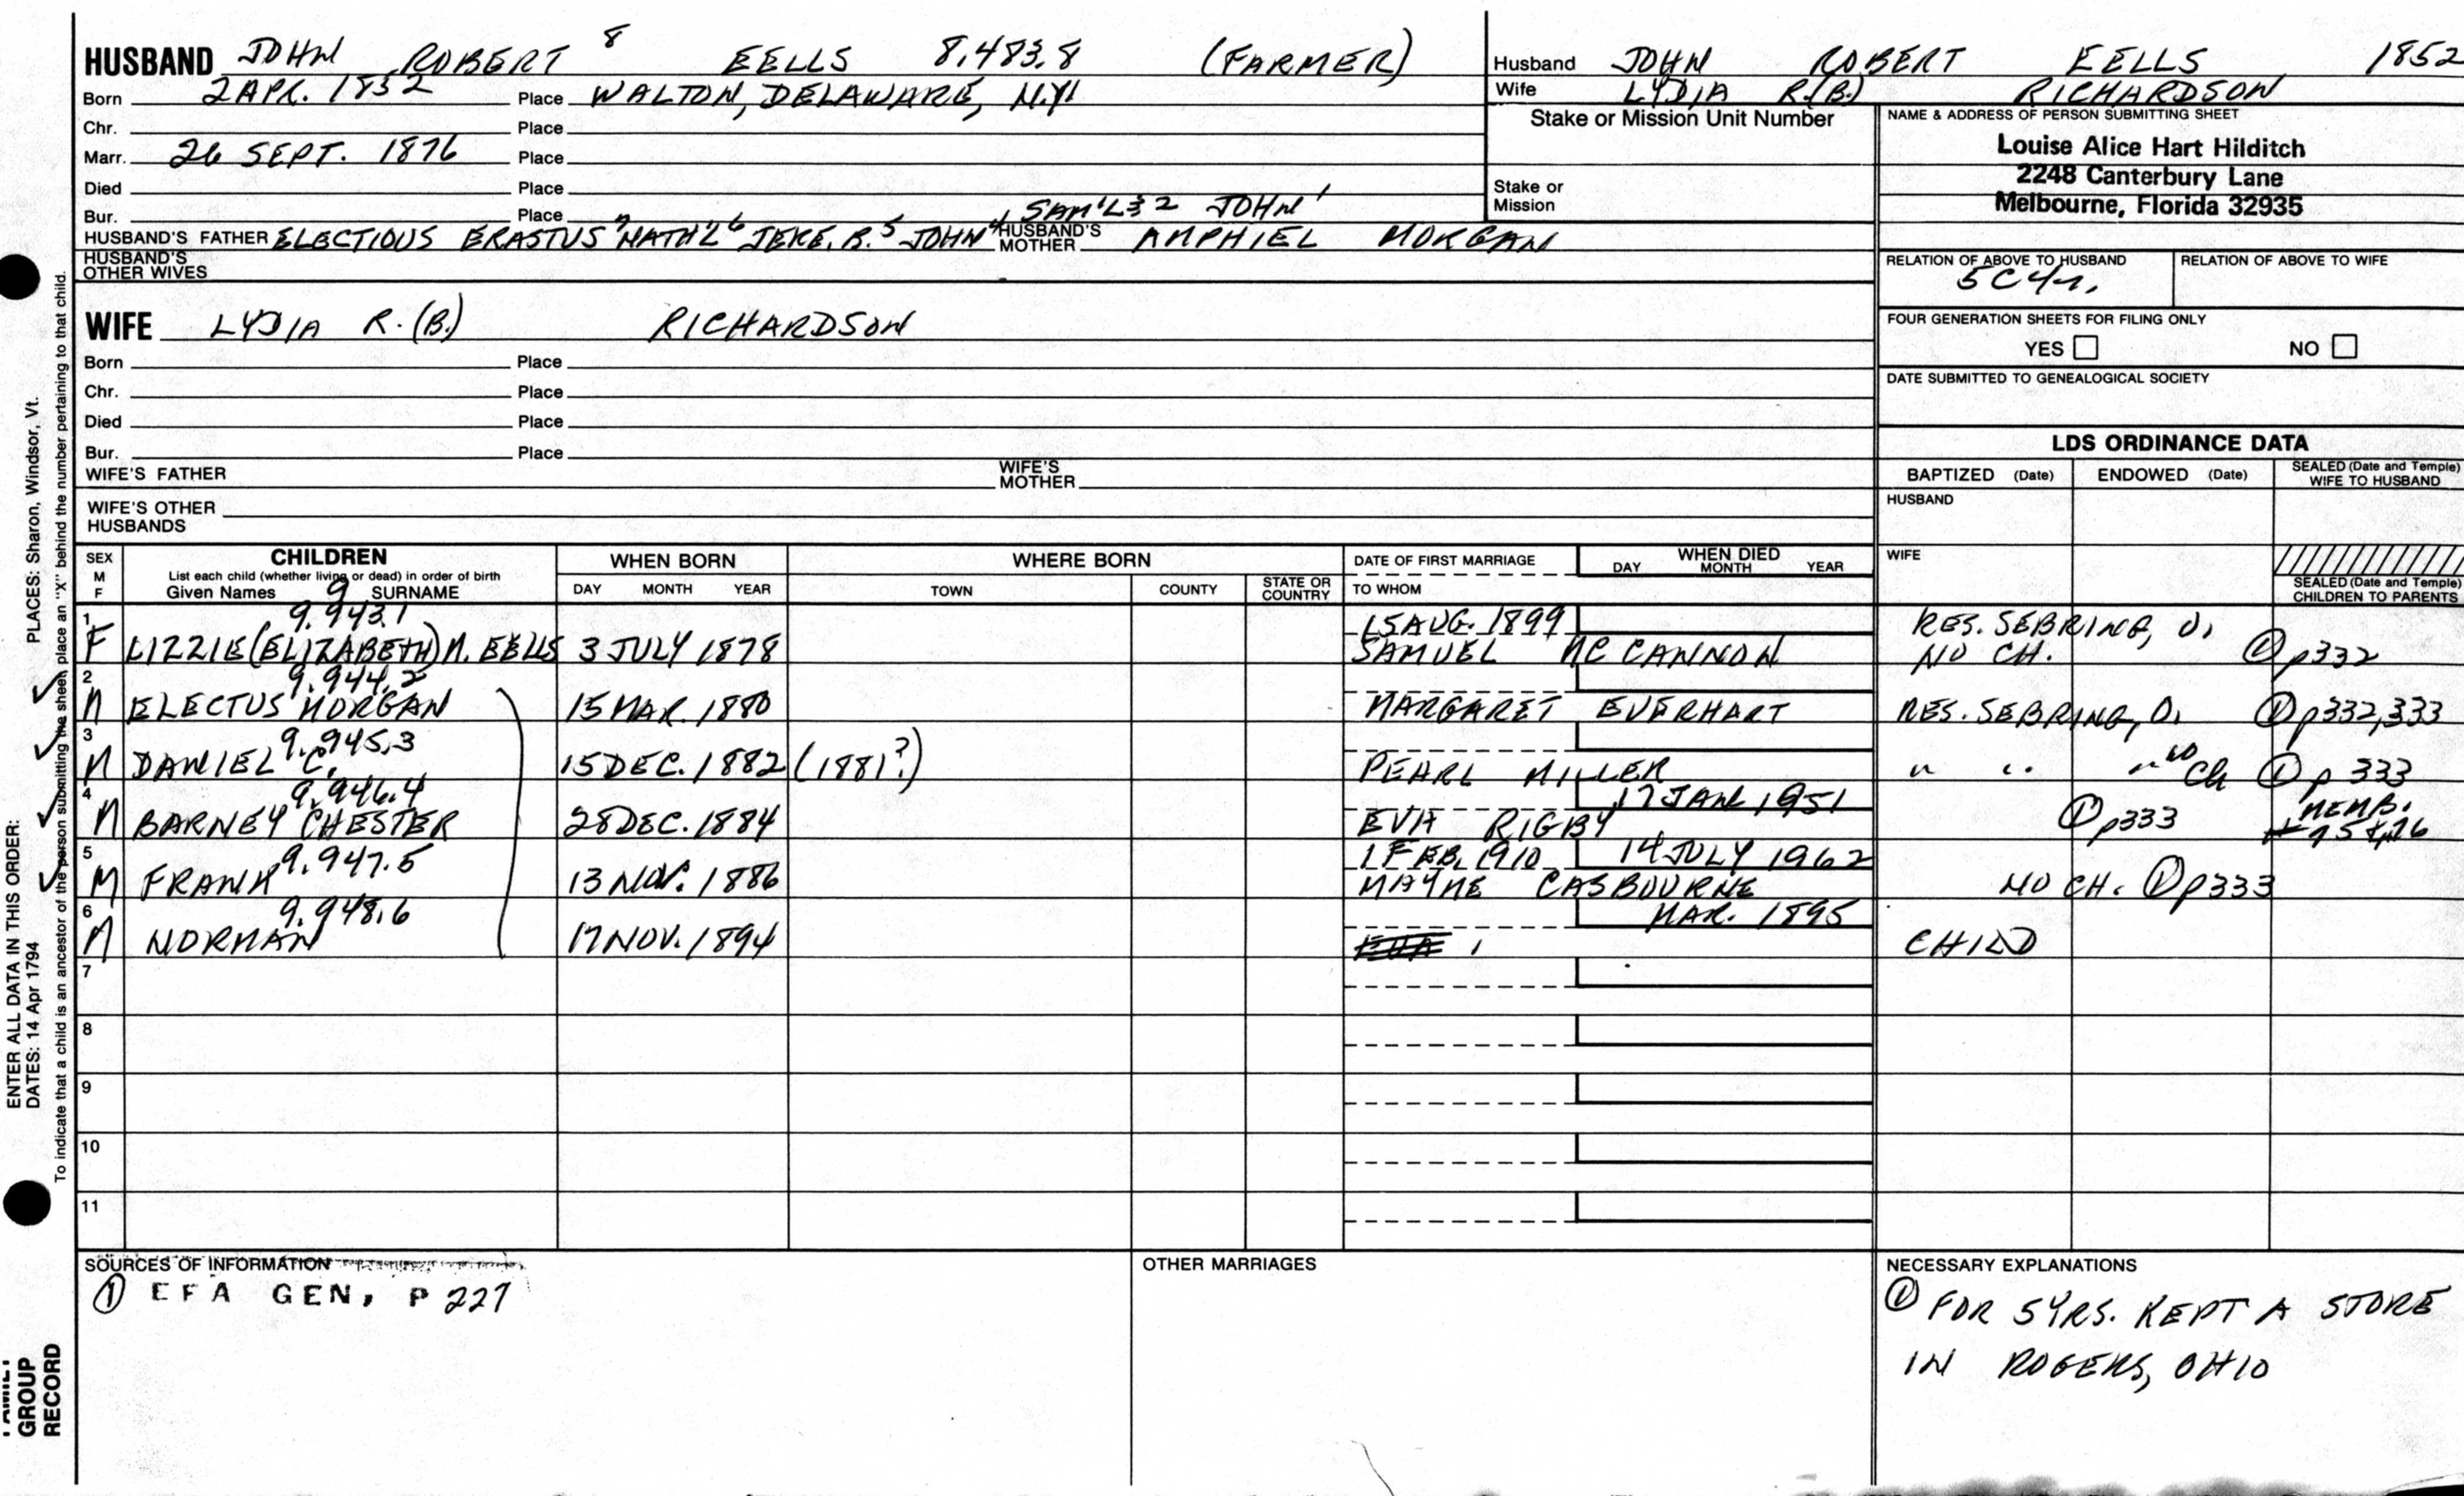 HUSBAND JOHN ROBERT 8 EELLS 8,483.8 (FARMER)
Born 2 APR. 1852 Place WALTON, DELAWARE, N.Y.
Chr. Place
Marr. 26 SEPT. 1876 Place
Died Place
Bur. Place SAM'L 3 2 JOHN 1
HUSBAND'S FATHER ELECTIOUS ERASTUS 7 NATH'L 6 JERE. B. 5 JOHN 4 HUSBAND'S MOTHER AMPHIEL MORGAN
HUSBAND'S OTHER WIVES
WIFE LYDIA R. (B.) RICHARDSON
Born Place
Chr. Place
Died Place
Bur. Place
WIFE'S FATHER WIFE'S MOTHER
WIFE'S OTHER HUSBANDS
Husband JOHN ROBERT EELLS 1852
Wife LYDIA R.(B.) RICHARDSON
Stake or Mission Unit Number
Stake or Mission
NAME & ADDRESS OF PERSON SUBMITTING SHEET
Louise Alice Hart Hilditch
2248 Canterbury Lane
Melbourne, Florida 32935
RELATION OF ABOVE TO HUSBAND RELATION OF ABOVE TO WIFE
5C4r.
FOUR GENERATION SHEETS FOR FILING ONLY
YES NO
DATE SUBMITTED TO GENEALOGICAL SOCIETY
LDS ORDINANCE DATA
BAPTIZED (Date) ENDOWED (Date) SEALED (Date and Temple) WIFE TO HUSBAND
HUSBAND
WIFE
SEALED (Date and Temple) CHILDREN TO PARENTS
SEX M F CHILDREN WHEN BORN WHERE BORN DATE OF FIRST MARRIAGE WHEN DIED
List each child (whether living or dead) in order of birth
Given Names 9 SURNAME DAY MONTH YEAR TOWN COUNTY STATE OR COUNTRY TO WHOM DAY MONTH YEAR
1 9.943.1 15 AUG. 1899 RES. SEBRING, O.
F LIZZIE (ELIZABETH) M. EELLS 3 JULY 1878 SAMUEL MC CANNON NO CH. ① p332
2 9.944.2
M ELECTUS MORGAN 15 MAR. 1880 MARGARET EVERHART RES. SEBRING, O. ① p332,333
3 9.945.3
M DANIEL C. 15 DEC. 1882 (1881?) PEARL MILLER " " " NO Ch ① p 333
4 9.946.4 17 JAN 1951 MEMB.
M BARNEY CHESTER 28 DEC. 1884 EVA RIGBY ① p333 # 75 & 76
5 9.947.5 1 FEB. 1910 14 JULY 1962
M FRANK 13 NOV. 1886 MAYME CASBOURNE NO CH. ① p333
6 9.948.6 MAR. 1895
M NORMAN 17 NOV. 1894 CHILD
7
8
9
10
11
SOURCES OF INFORMATION
① EFA GEN, P 227
OTHER MARRIAGES
NECESSARY EXPLANATIONS
① FOR 5 YRS. KEPT A STORE
IN ROGERS, OHIO
ENTER ALL DATA IN THIS ORDER:
DATES: 14 Apr 1794 PLACES: Sharon, Windsor, Vt.
To indicate that a child is an ancestor of the person submitting the sheet, place an "X" behind the number pertaining to that child.
FAMILY
GROUP
RECORD